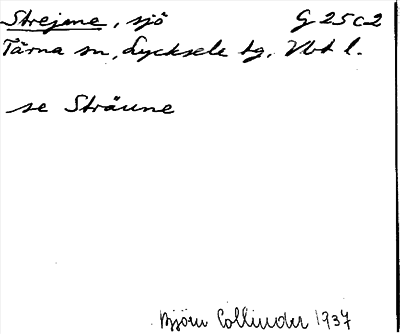 Strejme, sjö G 25c2
Tärna sn, Lycksele tg. Vbt l.
se Sträune
Björn Collinder 1937